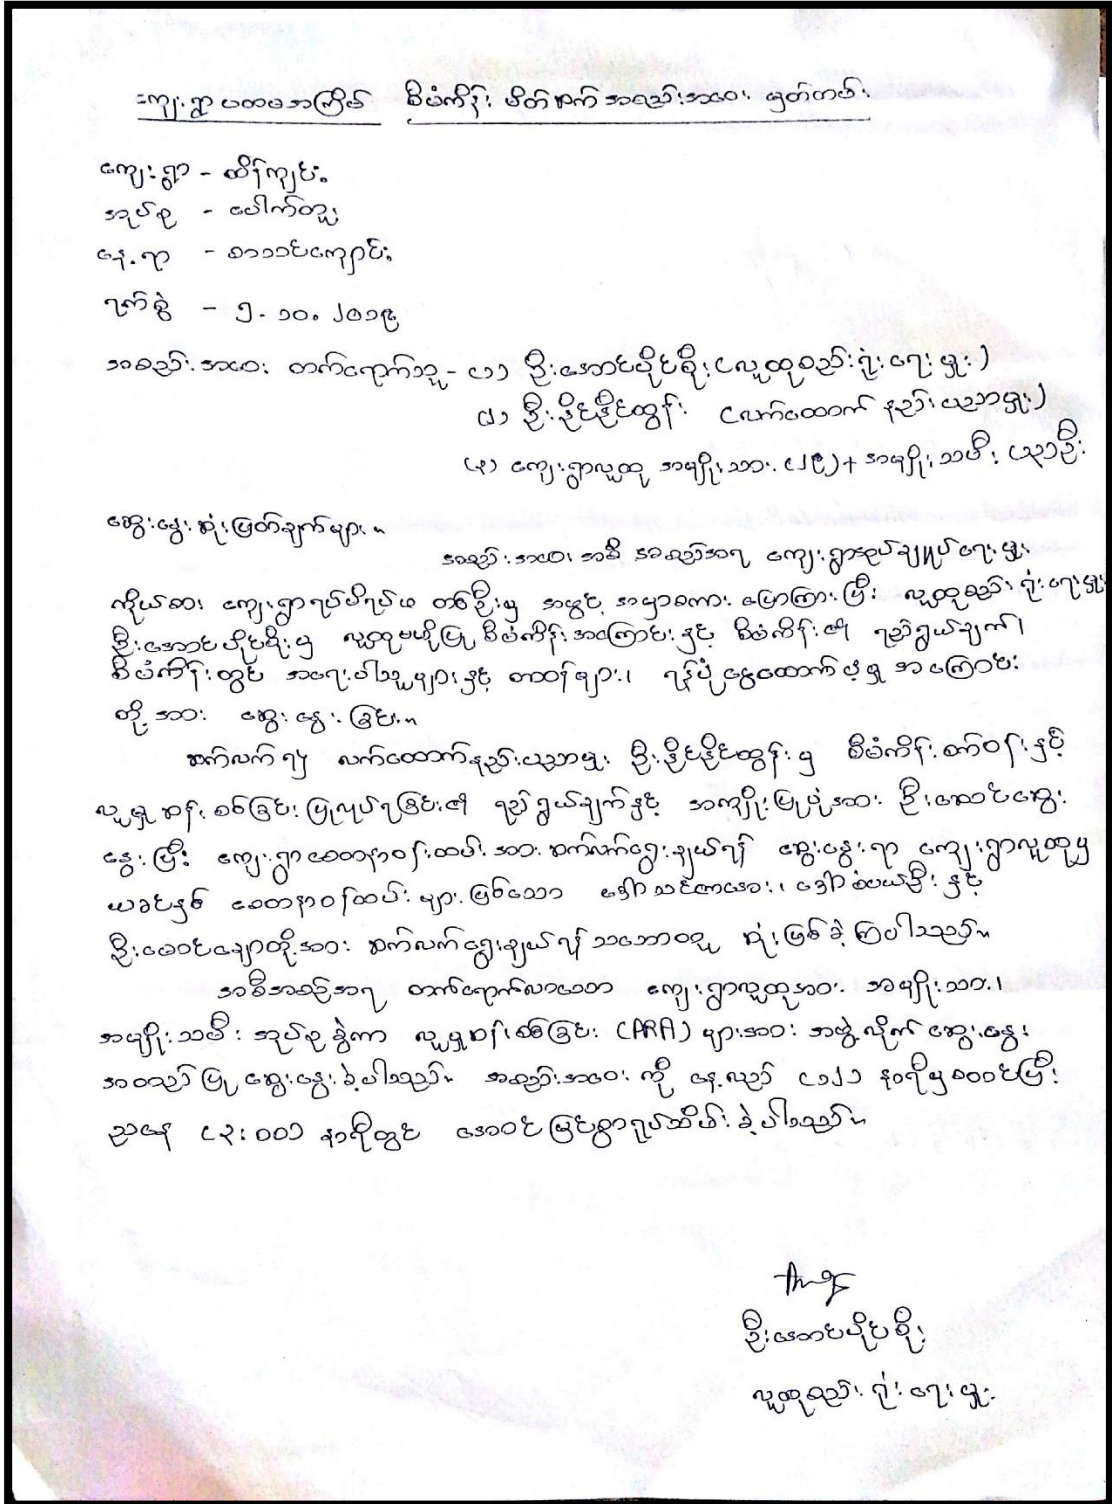 ကျေးရွာပထမအကြိမ် စီမံကိန်းမိတ်ဆက် အစည်းအဝေး မှတ်တမ်း
ကျေးရွာ - ထိန်ကျင်း
အုပ်စု - ပေါက်တူး
နေ့ရာ - စာသင်ကျောင်း
ရက်စွဲ - ၅.၁၀.၂၀၁၉
အစည်းအဝေး တက်ရောက်သူ - (၁) ဦးအောင်ပိုင်စိုး (လူထုစည်းရုံးရေးမှူး)
(၂) ဦးနိုင်နိုင်ထွန်း (လက်ထောက် နည်းပညာမှူး)
(၃) ကျေးရွာလူထု အမျိုးသား (၂၉) + အမျိုးသမီး ဦး
ဆွေးနွေးဆုံးဖြတ်ချက်များ။
အစည်းအဝေး အစီအစဉ်အရ ကျေးရွာအုပ်ချုပ်ရေးမှူး
ကိုယ်စား ကျေးရွာရပ်မိရပ်ဖ တစ်ဦးမှ အဖွင့်အမှာစကား ပြောကြားပြီး လူထုစည်းရုံးရေးမှူး
ဦးအောင်ပိုင်စိုးမှ လူထုဗဟိုပြု စီမံကိန်းအကြောင်းနှင့် စီမံကိန်း၏ ရည်ရွယ်ချက်၊
စီမံကိန်းတွင် အရေးပါသူများနှင့် တာဝန်များ၊ ရန်ပုံငွေထောက်ပံ့မှု အကြောင်း
တို့အား ဆွေးနွေးခြင်း။
ဆက်လက်၍ လက်ထောက်နည်းပညာမှူး ဦးနိုင်နိုင်ထွန်းမှ စီမံကိန်းစက်ဝန်းနှင့်
လူမှုဆန်းစစ်ခြင်း ပြုလုပ်ရခြင်း၏ ရည်ရွယ်ချက်နှင့် အကျိုးပြုပုံအား ဦးဆောင်ဆွေး
နွေးပြီး ကျေးရွာစေတနာ့ဝန်ထမ်းအား ဆက်လက်ရွေးချယ်ရန် ဆွေးနွေးရာ ကျေးရွာလူထုမှ
ယခင်နှစ် စေတနာ့ဝန်ထမ်းများဖြစ်သော ဒေါ်သင်းဇာအေး၊ ဒေါ်စံပယ်ဦးနှင့်
ဦးမောင်ချောတို့အား ဆက်လက်ရွေးချယ်ရန် သဘောတူ ဆုံးဖြစ်ခဲ့ကြပါသည်။
အစီအစဉ်အရ တက်ရောက်လာသော ကျေးရွာလူထုအား အမျိုးသား၊
အမျိုးသမီး အုပ်စုခွဲကာ လူမှုဆန်းစစ်ခြင်း (PRA) များအား အဖွဲ့လိုက် ဆွေးနွေး
အတည်ပြု ဆွေးနွေးခဲ့ပါသည်။ အစည်းအဝေးကို နေ့လည် (၁၂) နာရီမှစတင်ပြီး
ညနေ (၃:၀၀) နာရီတွင် အောင်မြင်စွာရုပ်သိမ်းခဲ့ပါသည်။
ဦးအောင်ပိုင်စိုး
လူထုစည်းရုံးရေးမှူး